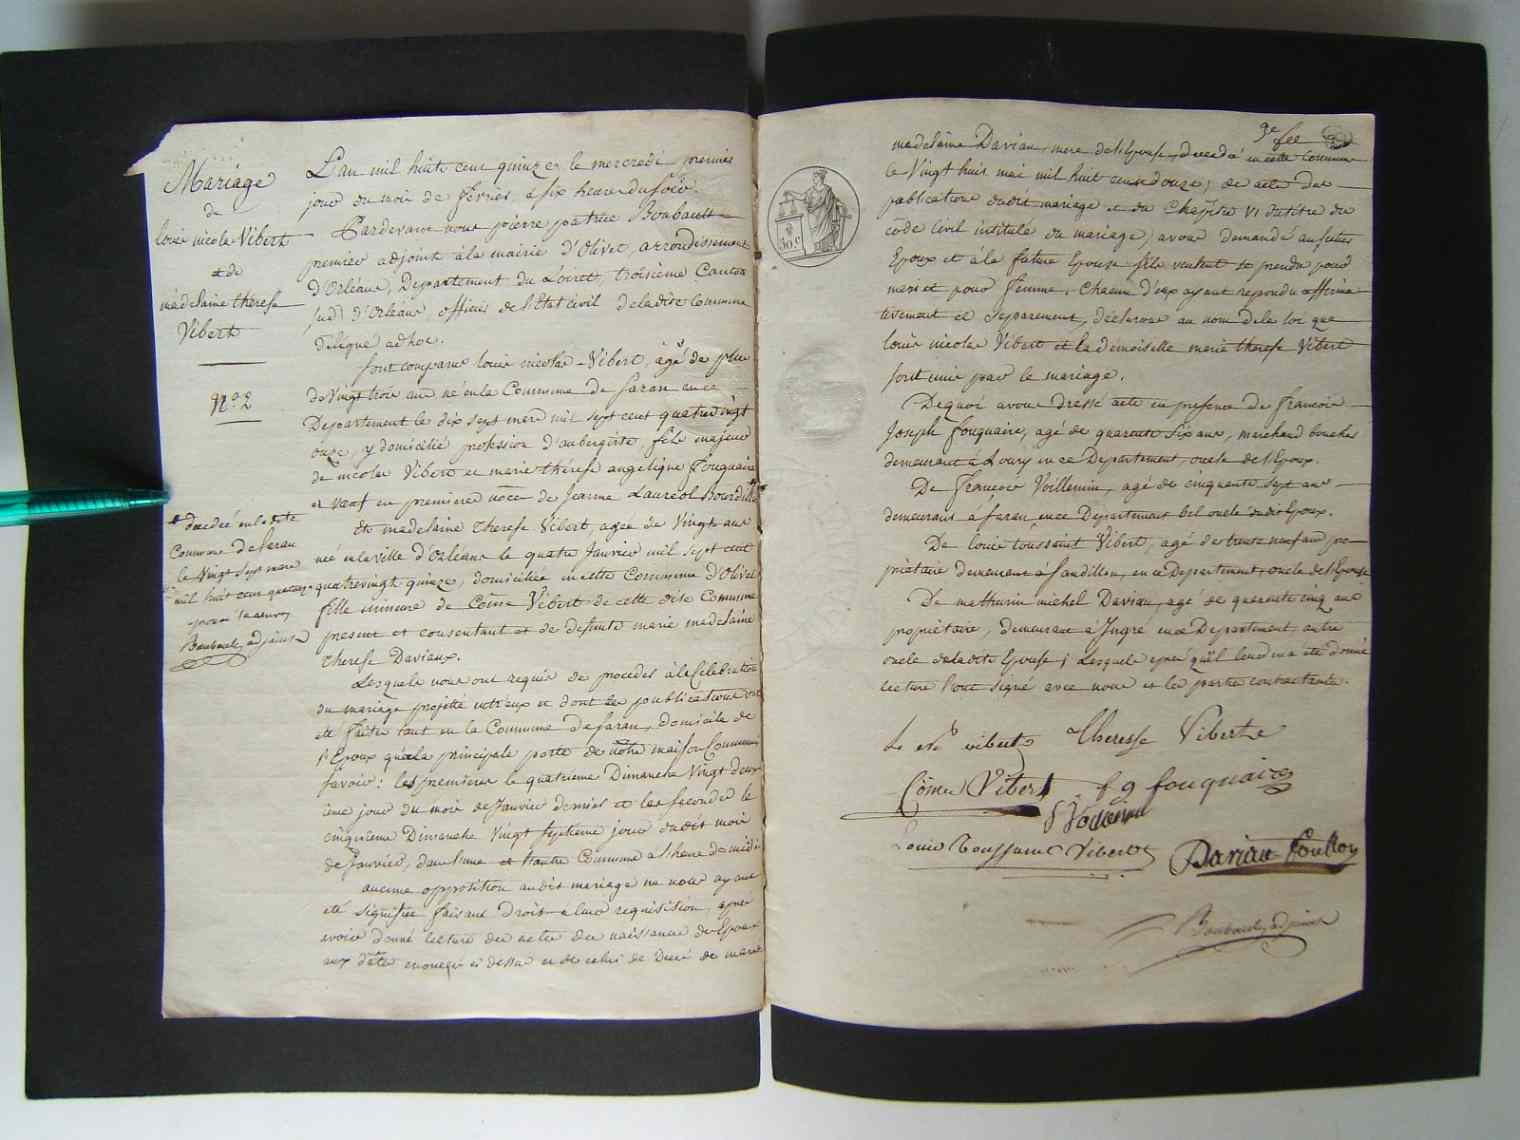 Mariage
de
louis nicolas Vibert
et de
madelaine therese
Vibert
N.o 2
L'an mil huit cent quinze le mercredi premier
jour du mois de février à six heures du soir.
Pardevant nous pierre patrice Boubault
premier adjoint à la mairie d'Olivet, arrondissement
d'Orléans, Departement du Loiret, troisième Canton
sud d'Orléans, officier de l'Etat Civil de la dite Commune
delegué adhoc.
sont comparus louis nicolas Vibert, âgé de plus
de Vingt trois ans né en la Commune de Saran en ce
Departement le dix sept mars mil sept cent quatrevingt
onze, y domicilié profession d'aubergiste, fils majeur
de nicolas Vibert et marie thérèse angelique fouquaire
et Veuf en premiere noce de Jeanne Lauréol Bourdill
Et madelaine Therese Vibert, agée de Vingt ans
née en la ville d'Orléans le quatre Janvier mil sept cent
quatrevingt quinze, domiciliée en cette Commune d'Olivet
fille mineure de Côme Vibert de cette dite Commune
present et consentant et de defunte marie madelaine
Therese Daviaux.
decedée en la dite
Commune de Saran
le Vingt sept mars
mil huit cent quatorze
Boubault adjoint
Lesquels nous ont requis de proceder à la Celebration
du mariage projetté entr'eux et dont les publications ont
été faites tant en la Commune de Saran, domicile de
l'Epoux qu'à la principale porte de notre maison Commune
savoir: les premieres le quatrieme Dimanche Vingt deux
eme jour du mois de Janvier dernier et les secondes le
cinquieme Dimanche Vingt septieme jour dudit mois
de Janvier, dans l'une et l'autre Commune a l'heure de midi
aucune opposition audit mariage ne nous ayant
été signifiée faisant droit à leur requisition, après
avoir donné lecture des actes de naissance des Epoux
aux dates enoncées ci dessus et de celui de Decès de marie
madelaine Daviau, mere de l'Epouse, decedé en cette Commune
le Vingt huit mai mil huit cent douze; des actes de
publication dudit mariage et du Chapitre VI du titre du
code Civil intitulé du mariage; avons demandé au futur
Epoux et à la future Epouse s'ils veulent se prendre pour
mari et pour femme. Chacun d'eux ayant repondu affirma
tivement et separement, déclarons au nom de la loi que
louis nicolas Vibert et la demoiselle marie therese Vibert
sont unis par le mariage.
De quoi avons dressé acte en presence de francois
Joseph fouquaire, agé de quarante six ans, marchand boucher
demeurant à Loury en ce Departement, oncle de l'Epoux.
De françois Voillemin, agé de cinquante sept ans
demeurant à Saran en ce Departement bel oncle dudit Epoux.
De louis toussaint Vibert, agé de trente neuf ans pro-
priétaire demeurant à Sandillon, en ce Departement, oncle de l'Epouse
De mathurin michel Daviau, agé de quarante cinq ans
propriétaire, demeurant à Ingré en ce Departement, autre
oncle de la dite Epouse; Lesquels après qu'il leur en a été donné
lecture l'ont signé avec nous et les parties contractantes.
Ls Nas vibert Theresse Vibert
Côme Vibert f j fouquaire
f Voillemin
Louis Toussaint Vibert Daviau Coulloy
Boubault adjoint